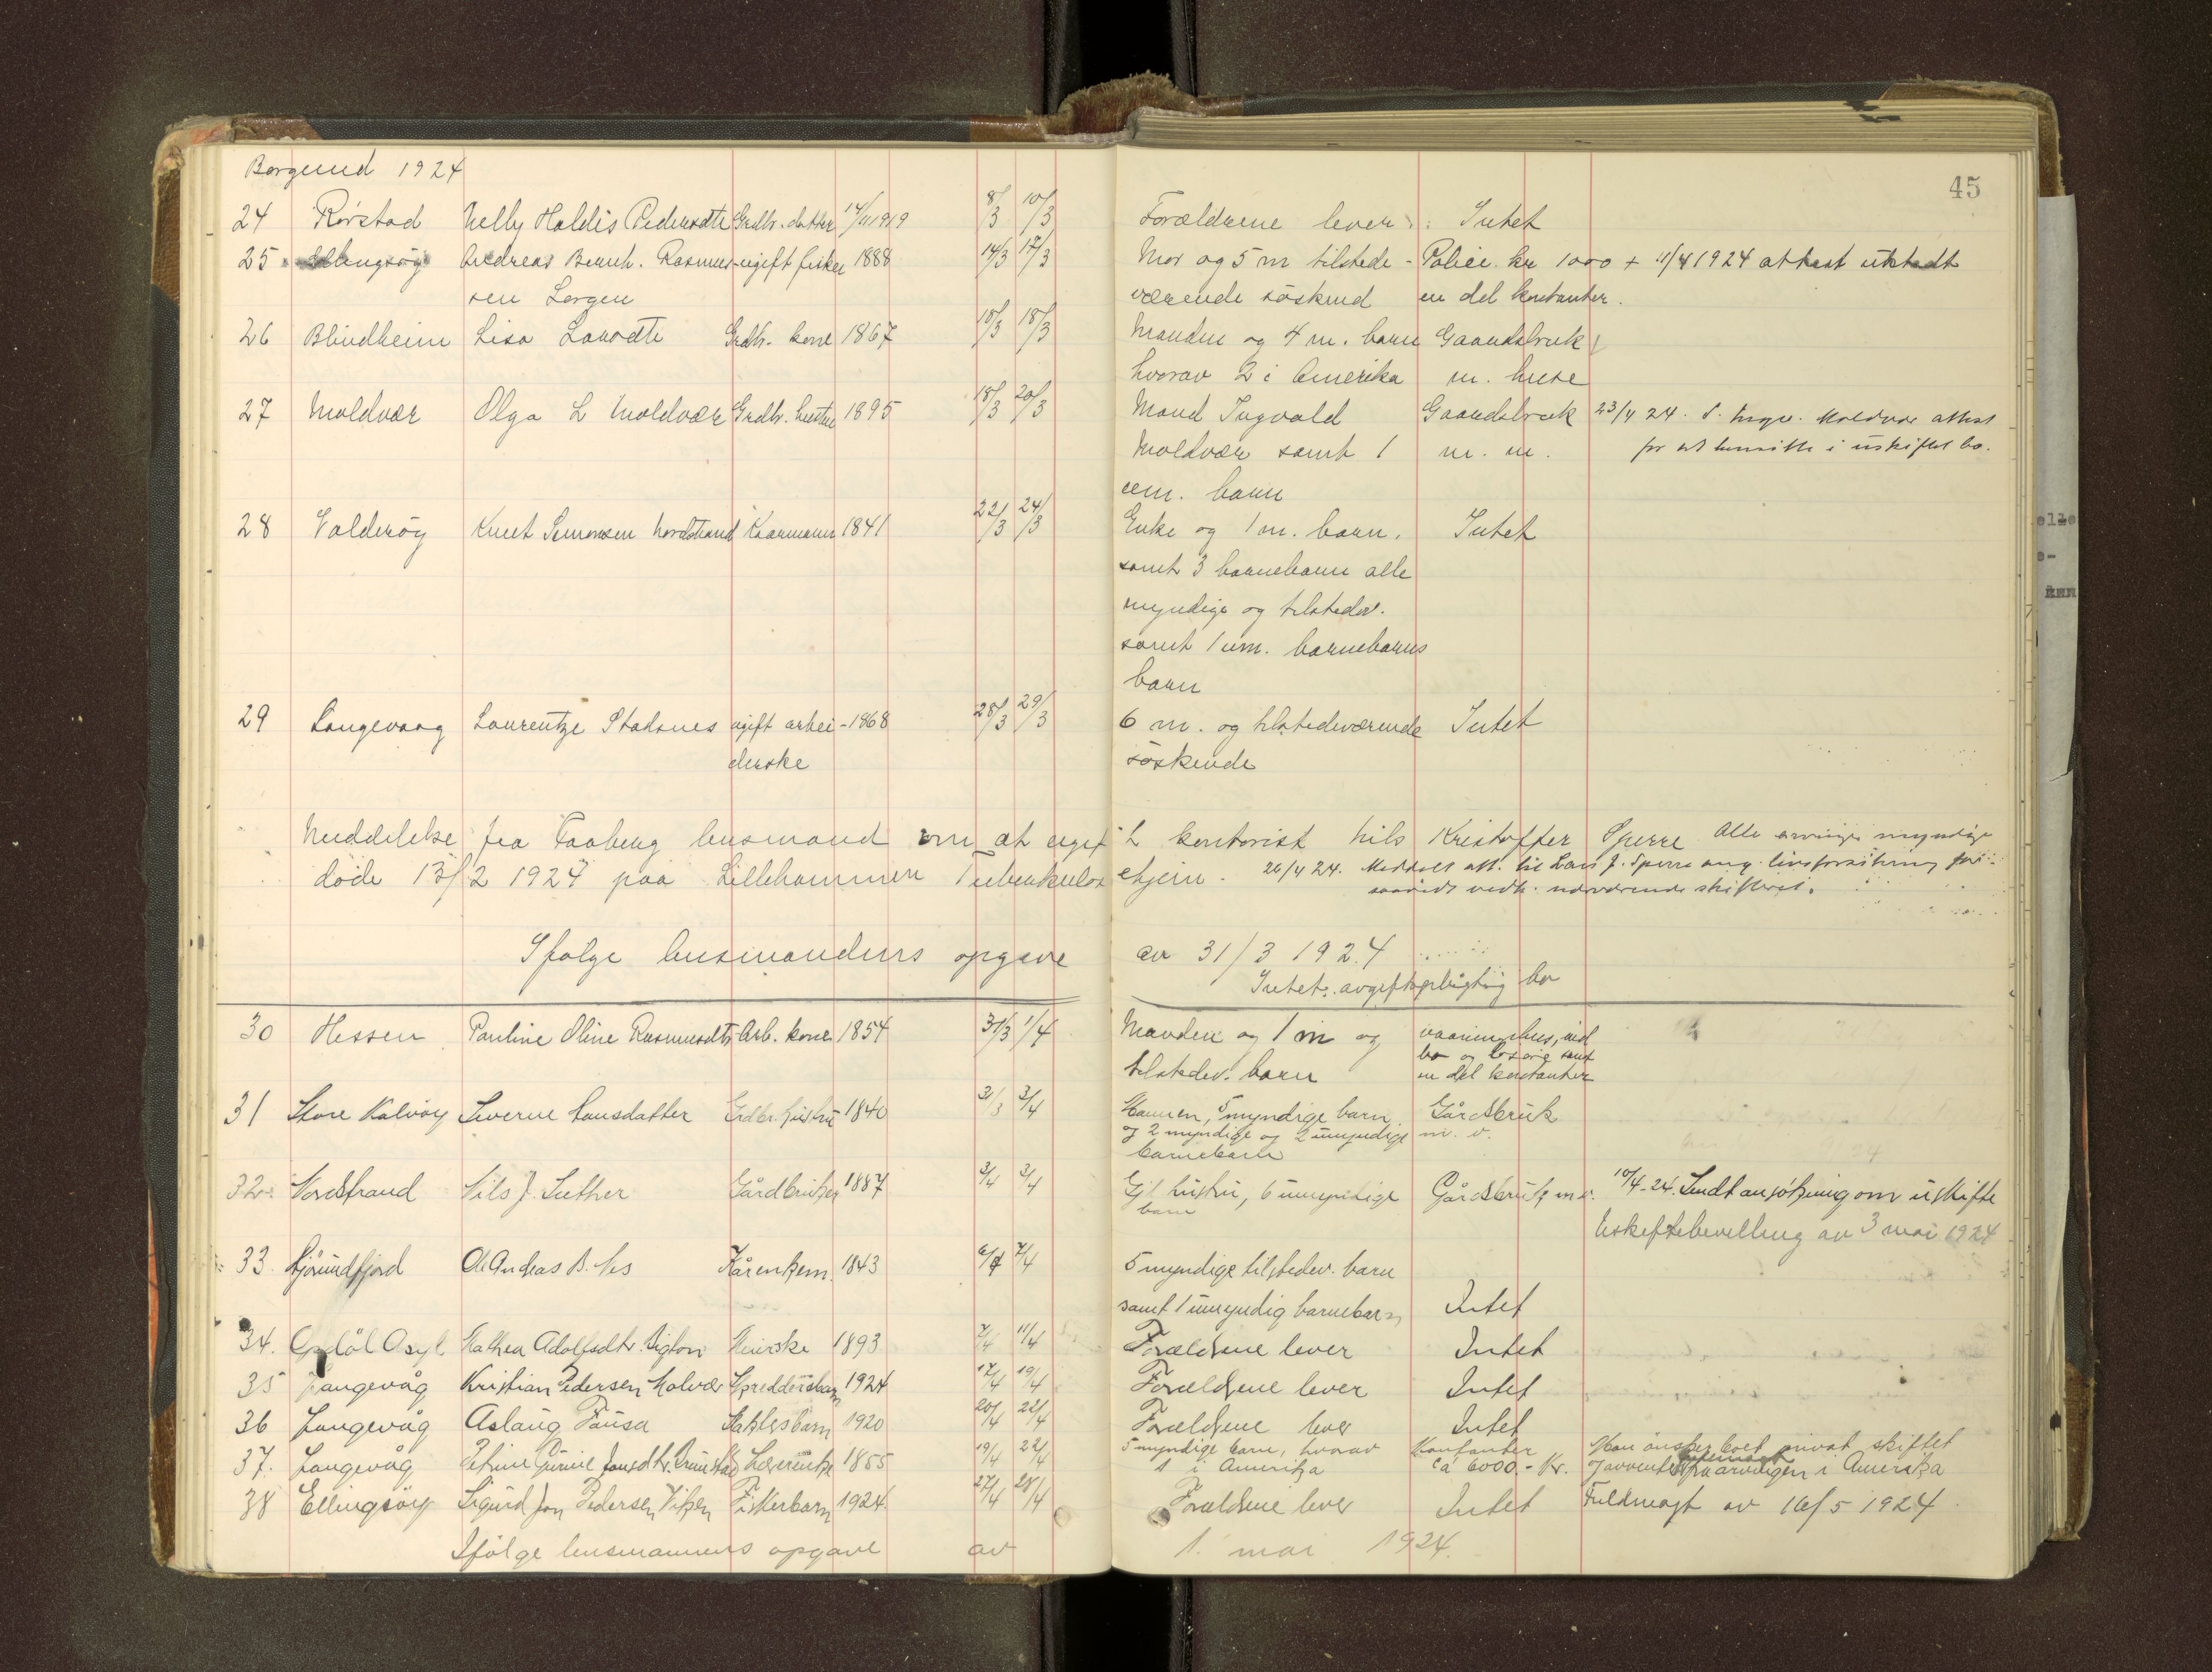 Borgund 1924
45
24 Rörstad Nelly Haldis Pedersdtr Grdbr. datter 14/11 1919 8/3 10/3 Forældrene lever Intet
25 Ellingsöy Andreas Bernh. Rasmus- ugift fisker 1888 14/3 17/3 Mor og 5 m tilstede- Police kr 1000 + 11/4 1924 attest utstedt
sen Lorgen værende söskend en del kontanter.
26 Blindheim Lisa Larsdtr Grdbr. kone 1867 10/3 18/3 Manden og 4 m. barn Gaardsbruk
hvorav 2 i Amerika m. huse
27 Moldvær Olga L Moldvær Grdbr. hustru 1895 18/3 20/3 Mand Ingvald Gaardsbruk 23/4 24. S. Ingv. Moldvær attest
Moldvær samt 1 m. m. for at hensitte i uskiftet bo.
um. barn
28 Valderöy Knut Simonsen Nordstrand Kaarmann 1841 22/3 24/3 Enke og 1 m. barn. Intet
samt 3 barnebarn alle
myndige og tilstedev.
samt 1 um. barnebarns
barn
29 Langevaag Laurentze Stadsnes ugift arbei- 1868 28/3 29/3 6 m. og tilstedeværende Intet
derske söskende
Meddelelse fra Faaberg lensmand om at ugift kontorist Nils Kristoffer Sperre Alle arvinger myndige
döde 13/2 1924 paa Lillehammer Tuberkulosehjem. 26/4 24. Meddelt att. til Lars J. Sperre ang. livsforsikring for-
saavidt vedk. nærværende skifteret.
Ifölge lensmandens opgave av 31/3 1924
Intet avgiftspligtig bo
30 Hessen Pauline Oline Rasmusdtr Arb. kone 1854 31/3 1/4 Manden og 1 m og vaaningshus, ind
tilstedev. barn bo og lösöre samt
en del kontanter
31 Store Kalvöy Severine Larsdatter Grdbr. hustru 1840 31/3 3/4 Mannen, 5 myndige barn Gårdsbruk
og 2 myndige og 2 umyndige m. v.
barnebarn
32. Nordstrand Nils J. Suther Gårdbruker 1887 2/4 3/4 Gjl. hustru, 6 umyndige Gårdsbruk m.v. 10/4-24. Sendt ansökning om uskifte
barn Uskiftebevilling av 3 mai 1924
33. Hjörundfjord Ole Andreas B. Nes Kårenkem. 1843 6/4 7/4 5 myndige tilstedev. barn
samt 1 umyndig barnebarn Intet
34. Opdöl Mathea Adolfsdtr. Sigton 1893 7/4 11/4 Forældrene lever Intet
35 Langevåg Kristian Pedersen Molvær Skreddersbarn 1924 17/4 19/4 Forældrene lever Intet
36 Langevåg Aslaug Fausa Maktesbarn 1920 20/4 22/4 Forældrene lever Intet
37. Langevåg Petrine Gurine Jonsdtr. Brunstad Lærerenke 1855 19/4 22/4 5 myndige barn, hvorav Kontanter Man önsker boet privat skiftet
1 i Amerika ca 6000.- Kr. og avventer fuldmagt fra arvingen i Amerika
38 Ellingsöy Sigurd Jon Pedersen Viken Fiskerbarn 1924. 27/4 28/4 Forældrene lever Intet Fuldmagt av 16/5 1924
Ifölge lensmannens opgave av 1. mai 1924.